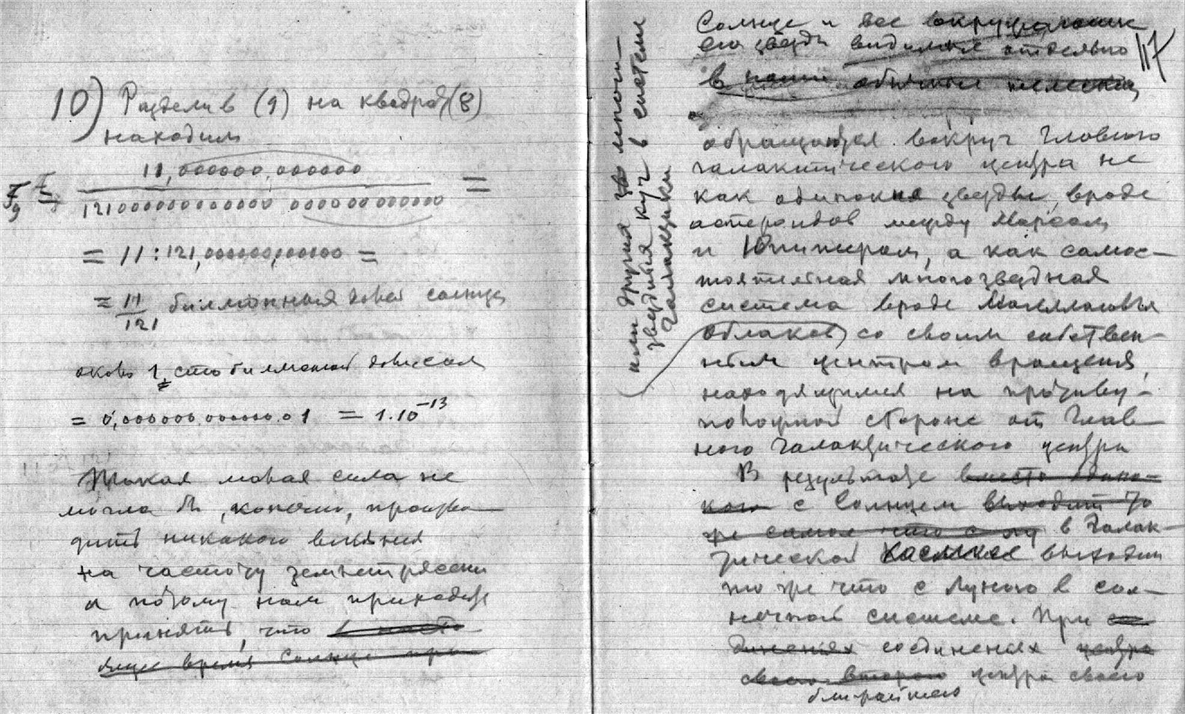 10) Разделив (9) на квадрат (8)
находим
11,000000,000000
121000000000000 000000000000
=
= 11 : 121,000000,000000 =
= 11/121 билмонная солнца
около 1 сто билмонной
= 0,000000,000000.01 = 1.10⁻¹³
Такая малая сила не
могла бы, конечно, произво-
дить никакого влияния
на частоту землетрясений
и потому нам приходится
принять, что в насто-
ящее время солнце при
117
Солнце и все окружающие
его звезды видимые отдельно
в наши обычные телескопы
обращаются вокруг Главного
галактического центра не
как одинокие звезды, вроде
астероидов между Марсом
и Юпитером, а как самос-
тоятельная многозвездная
система вроде Магеллановых
облаков, со своим собствен-
ным центром вращения,
находящимся на противу-
положной стороне от Глав-
ного Галактического центра
или другия многи-
звездныя куч в системе
Галактики
В результате вместо одино-
кого с Солнцем выходит то
же самое что с в Галак-
тической выходит
то же что с Луною в сол-
нечной системе. При со-
динениях соединениях центра
своего второго центра своего
ближайшего